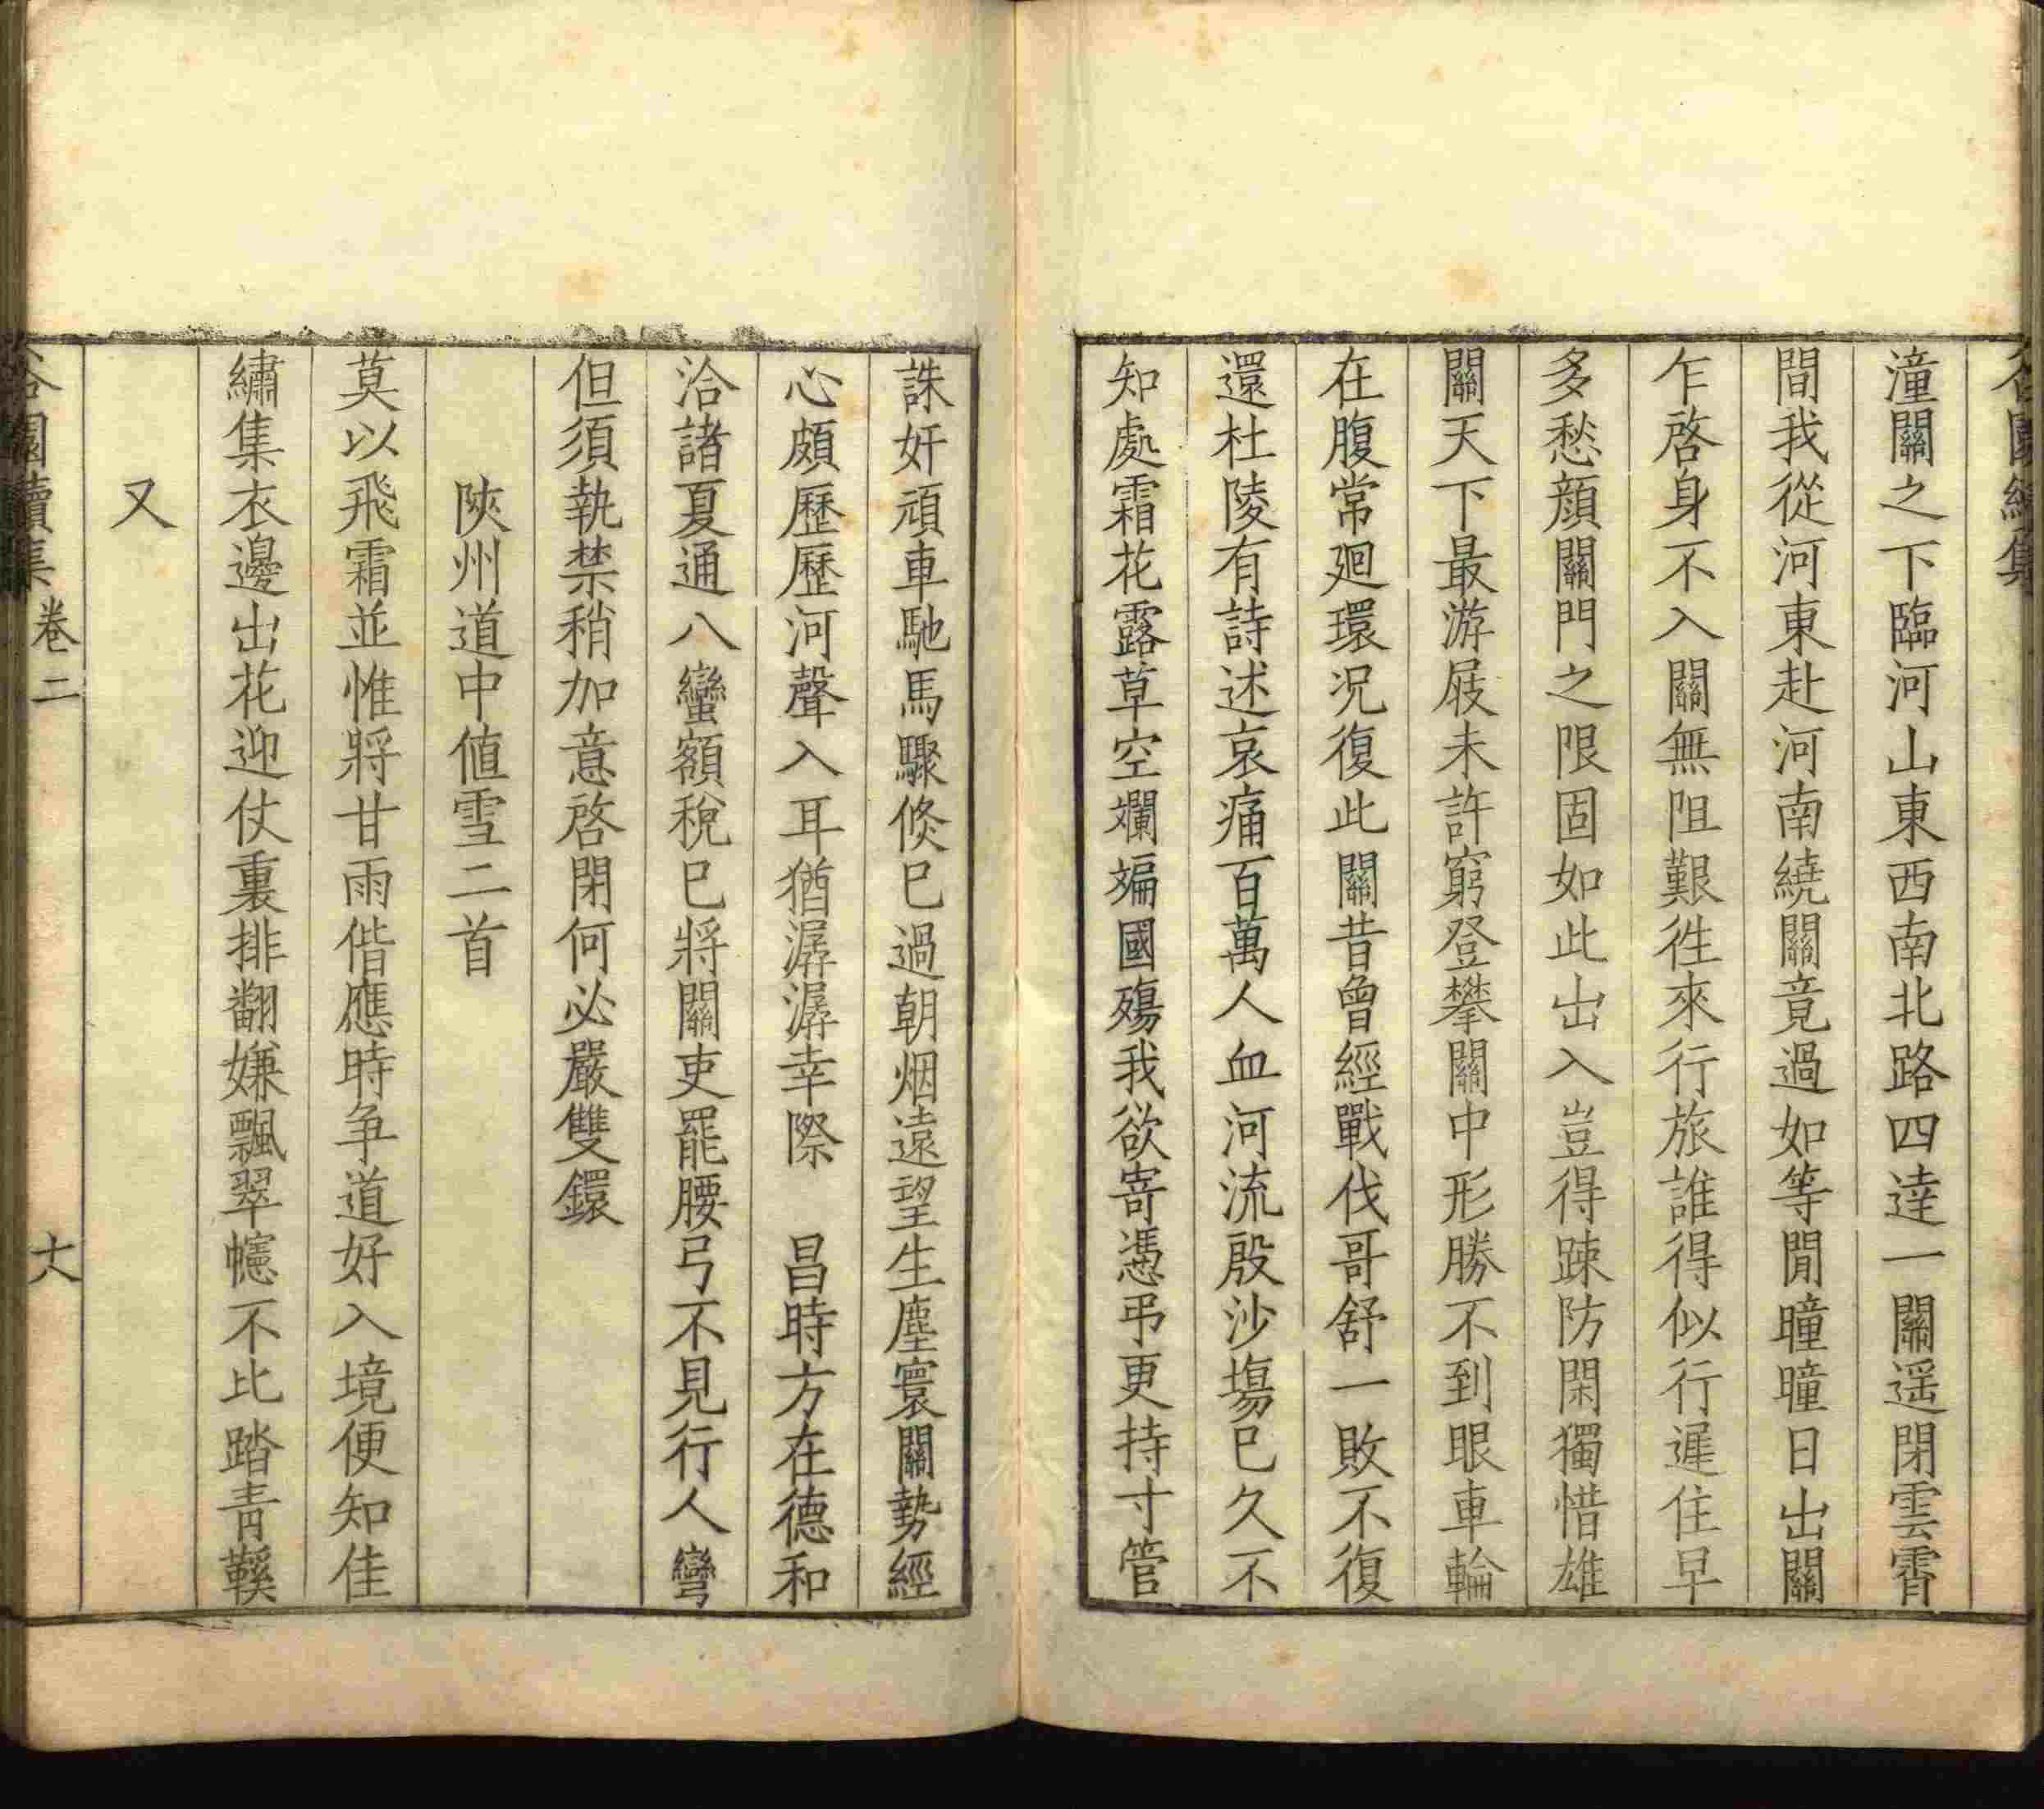 潼關之下臨河山東西南北路四達一關遥閉雲霄
間我從河東赴河南繞關竟過如等閒曈曈日出關
乍啓身不入關無阻艱徃來行旅誰得似行遲住早
多愁顔關門之限固如此出入豈得踈防閑獨惜雄
關天下最游屐未許窮登攀關中形勝不到眼車輪
在腹常廻環况復此關昔曾經戰伐哥舒一敗不復
還杜陵有詩述哀痛百萬人血河流殷沙塲已久不
知處霜花露草空斕斒國殤我欲寄憑弔更持寸管
誅奸頑車馳馬驟倐已過朝烟遠望生塵寰關勢經
心頗歷歷河聲入耳猶潺潺幸際 昌時方在德和
洽諸夏通八蠻額稅已將關吏罷腰弓不見行人彎
但須執禁稍加意啓閉何必嚴雙鐶
陝州道中值雪二首
莫以飛霜並惟將甘雨偕應時争道好入境便知佳
繡集衣邊出花迎仗裏排翻嫌飄翠幰不比踏青鞵
又
續集 卷二 十八